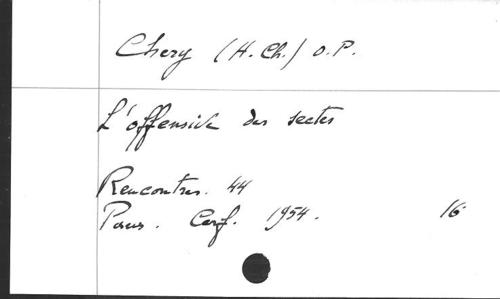 Chery (H. Ch.) O.P.
L'offensive des sectes
Rencontres. 44
Paris. Cerf. 1954. 16